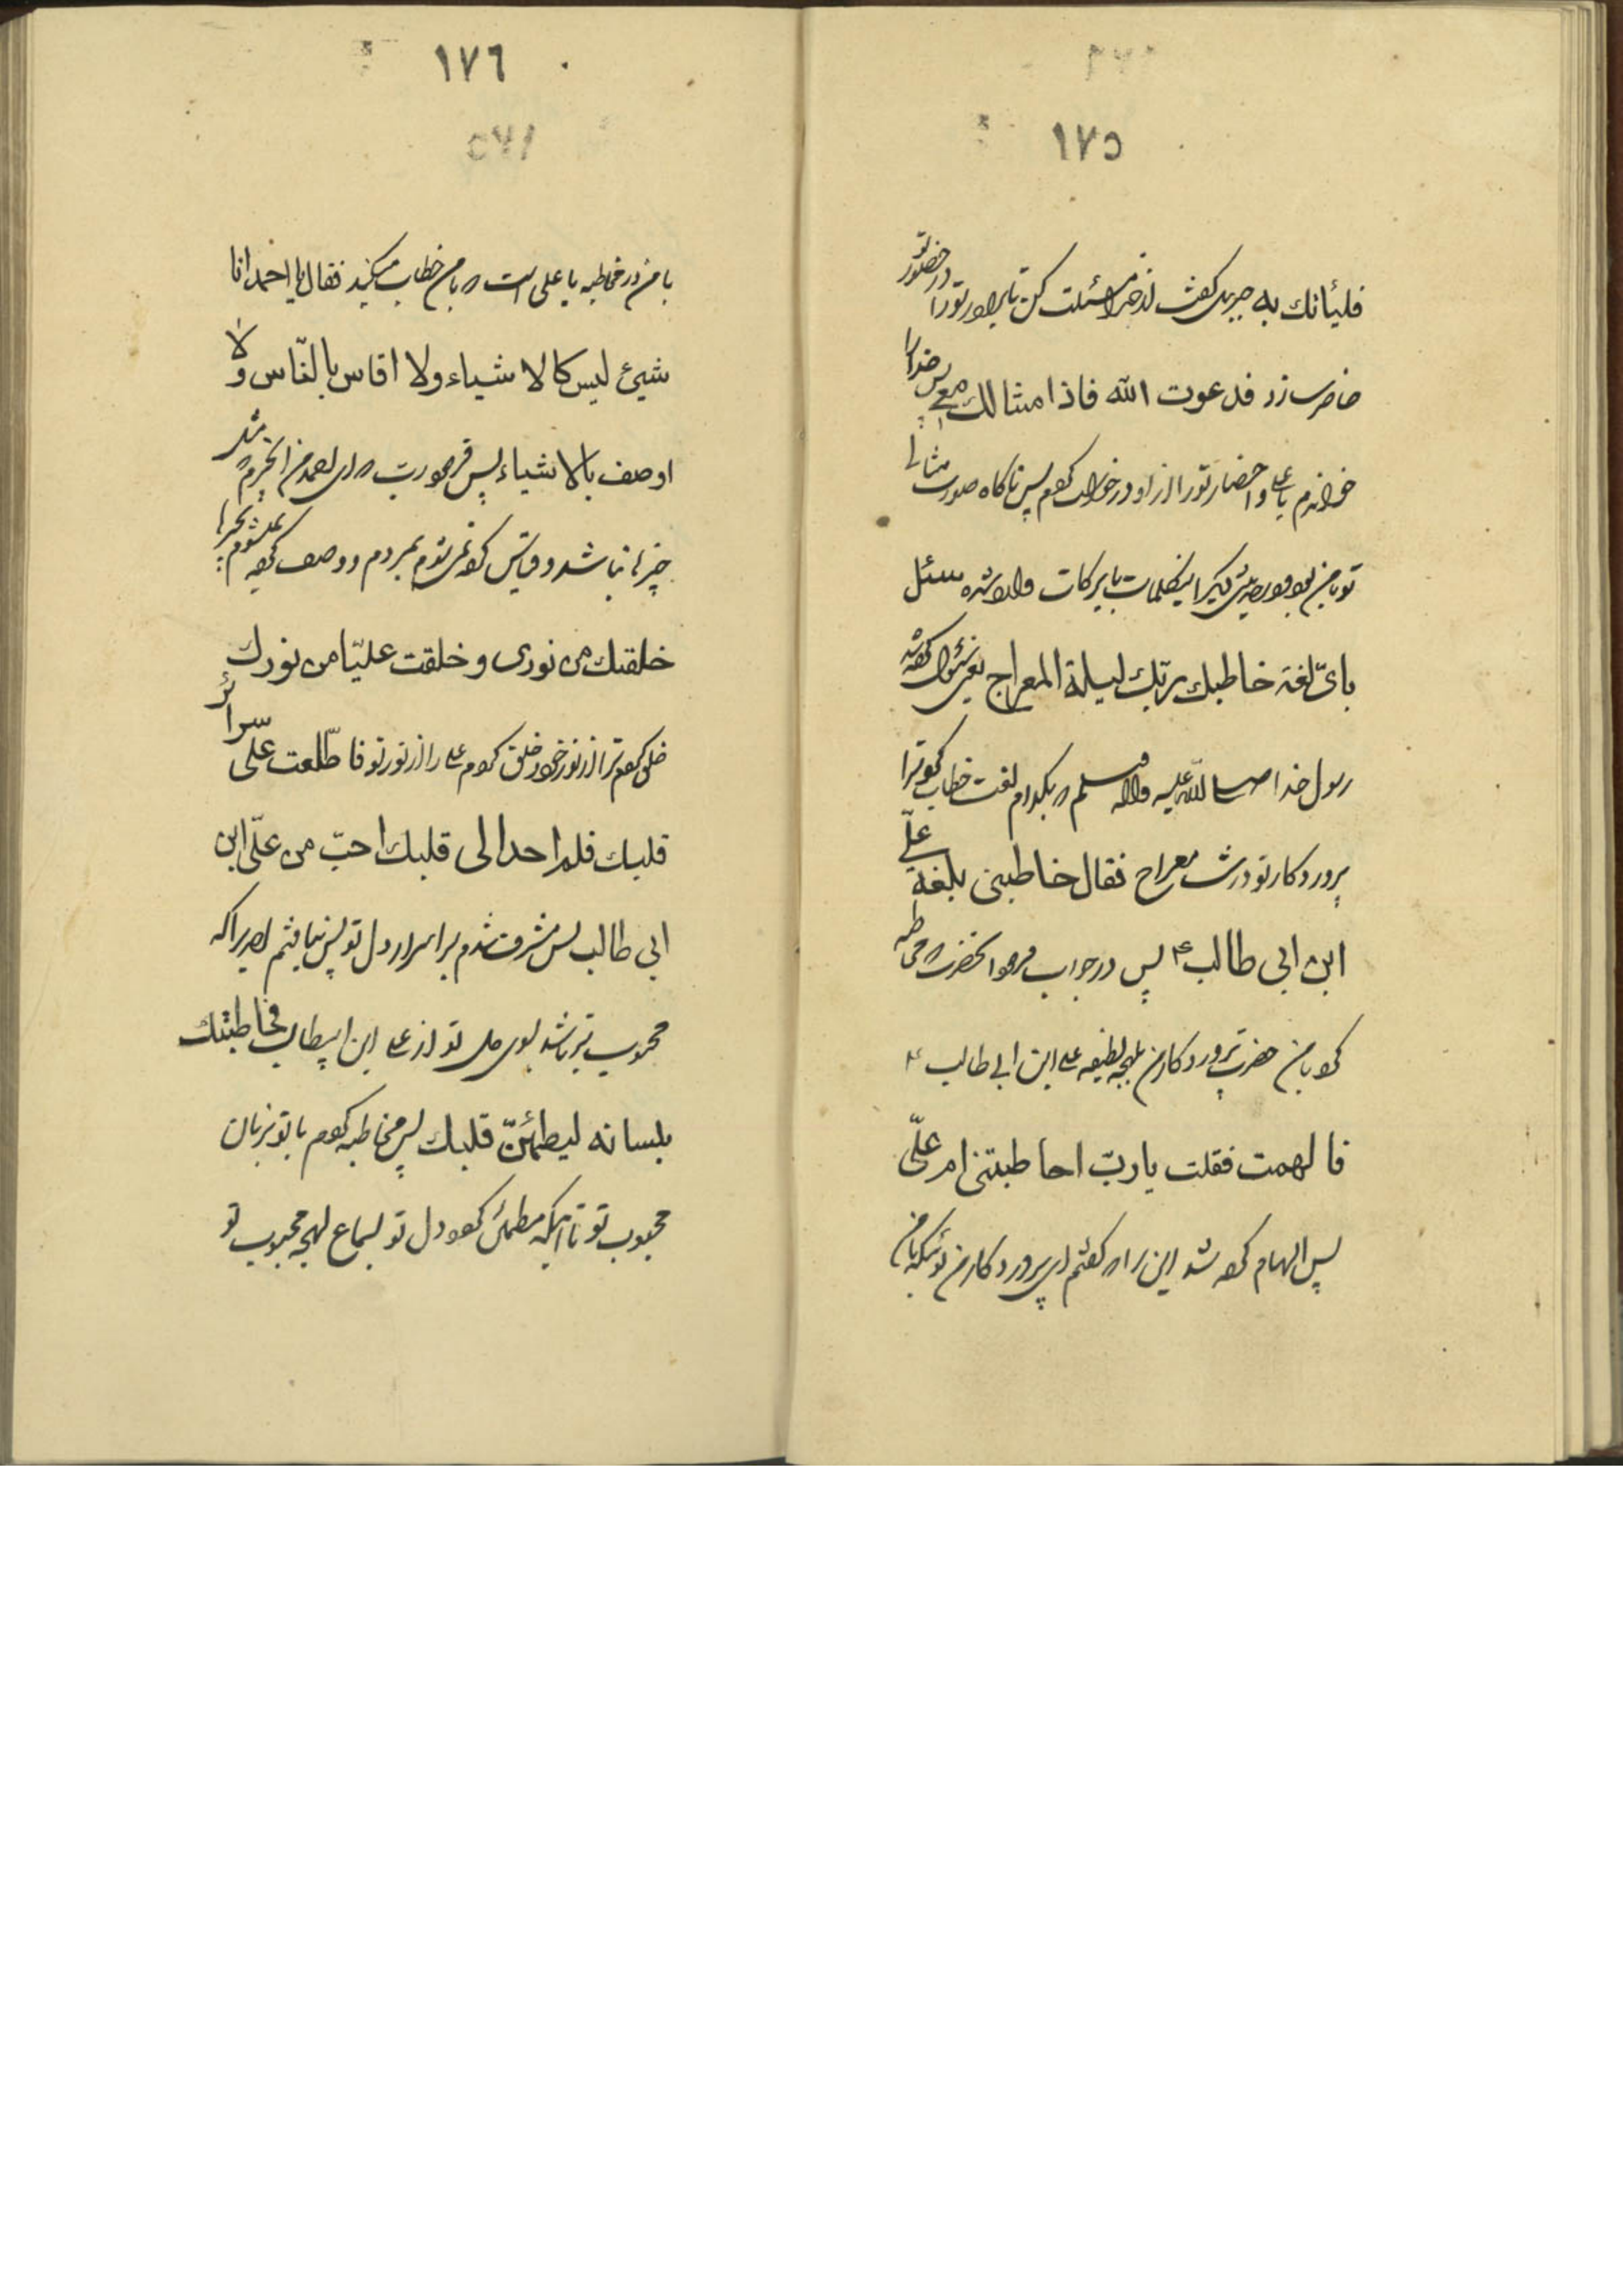 ١٧٥
فليأتك به جبرئيل گفت از خدا مسئلت كن تا بياورد تو را در حضور تو
حاضر سازد فدعوت الله فاذا مثالك معى پس خدا را
خواندم يا على و احضار تو را از او درخواست كردم پس ناگاه صورت مثالى
تو با من بود و در حديث ديگر اينكلمات با بركات وارد شده سئل
باىّ لغة خاطبك ربّك ليلة المعراج يعنى سئوال كرده شد
رسول خدا صلى الله عليه و آله و سلم كه بكدام لغت خطاب كرد ترا
پروردكار تو در شب معراج فقال خاطبنى بلغة علىّ
ابن ابى طالب ع پس در جواب فرمود آنحضرت كه مخاطبه
كرد با من حضرت پروردكار من بلهجه لطيفه على ابن ابى طالب ع
فالهمت فقلت يا ربّ اخاطبتنى ام علىّ
پس الهام كرده شد اين را كه گفتم اى پروردكار من توئيكه با من
١٧٦
با من در مخاطبه يا على است كه با من خطاب ميكند فقال يا احمد انا
شيئ ليس كالاشياء ولا اقاس بالنّاس ولا
اوصف بالاشياء پس فرمود رب كه اى احمد من آنچيزم كه مثل
چيزها نباشد و قياس كرده نمى شوم بمردم و وصف كرده نميشوم بچيزها
خلقتك من نورى و خلقت عليّا من نورك
خلق كردم ترا از نور خود و خلق كردم على را از نور تو فاطّلعت على سرائر
قلبك فلم احد الى قلبك احبّ من علىّ ابن
ابى طالب پس مشرف شدم بر اسرار دل تو پس نيافتم احديرا كه
محبوب تر باشد بسوى دل تو از على ابن ابيطالب فخاطبتك
بلسانه ليطمئنّ قلبك پس مخاطبه كردم با تو بزبان
محبوب تو تا اينكه مطمئن گردد دل تو بسماع لهجه محبوب تو